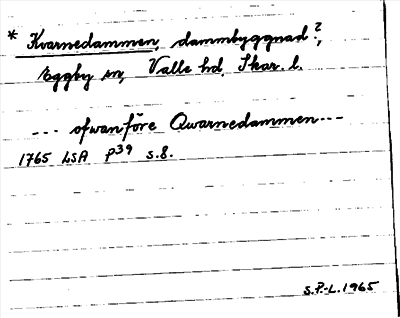 * Kvarnedammen, dammbyggnad?,
Eggby sn, Valle hd, Skar. l.
--- ofwanföre Qwarnedammen---
1765 LSA P39 s.8.
S.P-L.1965